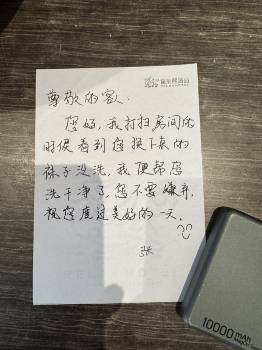 富驿时酒店
尊敬的客人:
您好,我打扫房间的
时候看到您换下来的
袜子没洗,我便帮您
洗干净了,您不要嫌弃,
祝您度过美好的一天。
张
10000 mAh